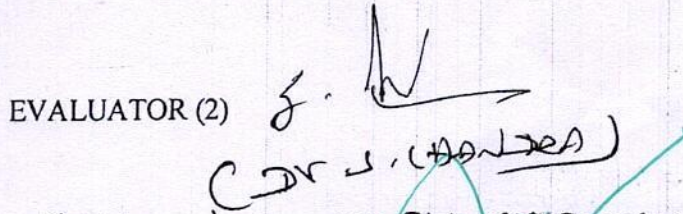 EVALUATOR (2)
(Dr S. CHANDRA)